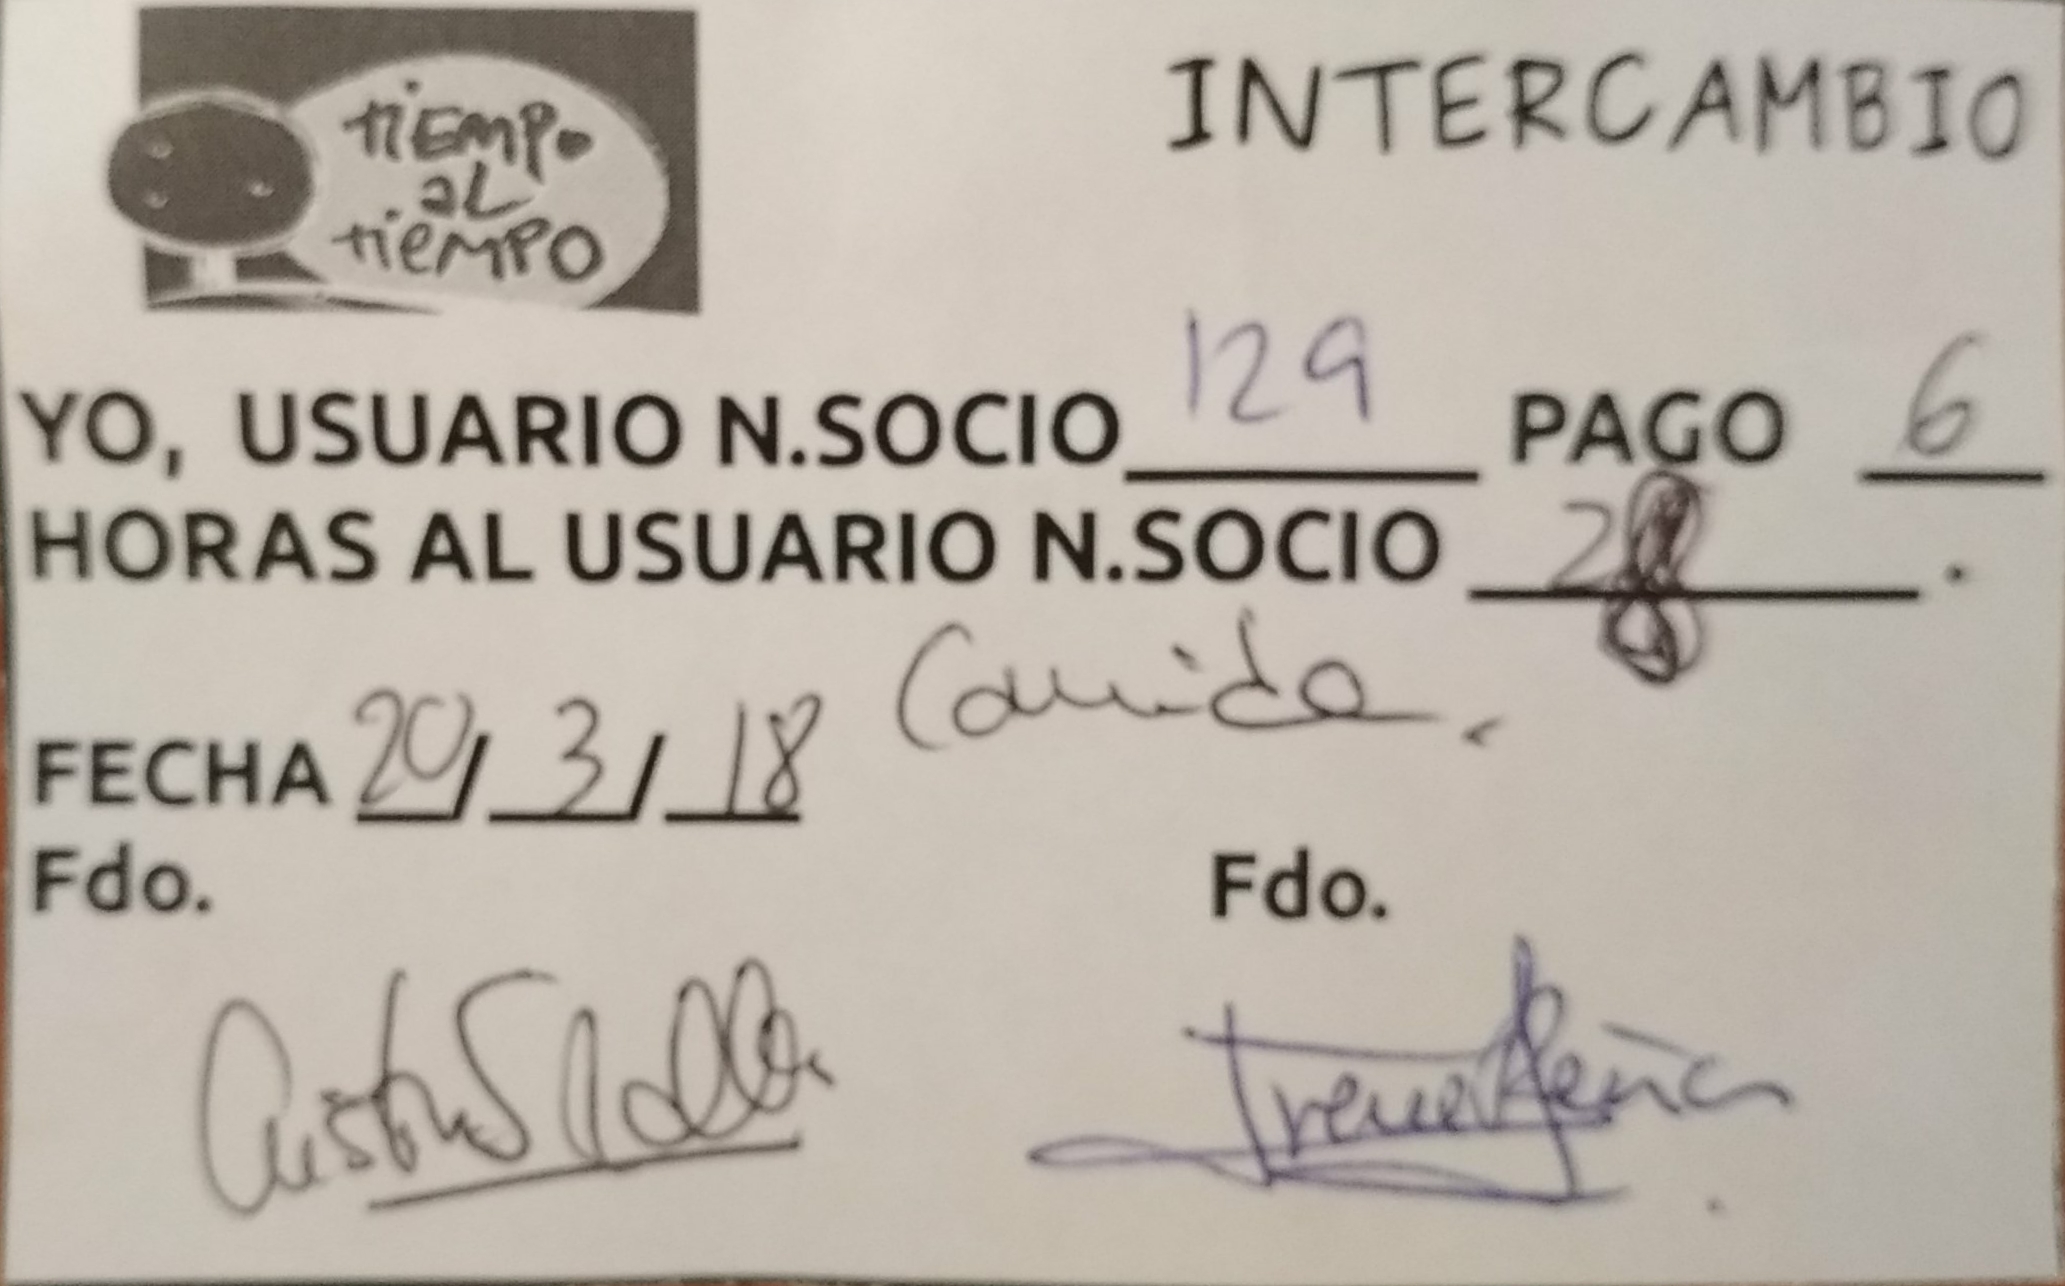 tiEMPo
aL
tieMPO
INTERCAMBIO
YO, USUARIO N.SOCIO 129 PAGO 6
HORAS AL USUARIO N.SOCIO 28.
Comida.
FECHA 20/3/18
Fdo. Fdo.
Irene